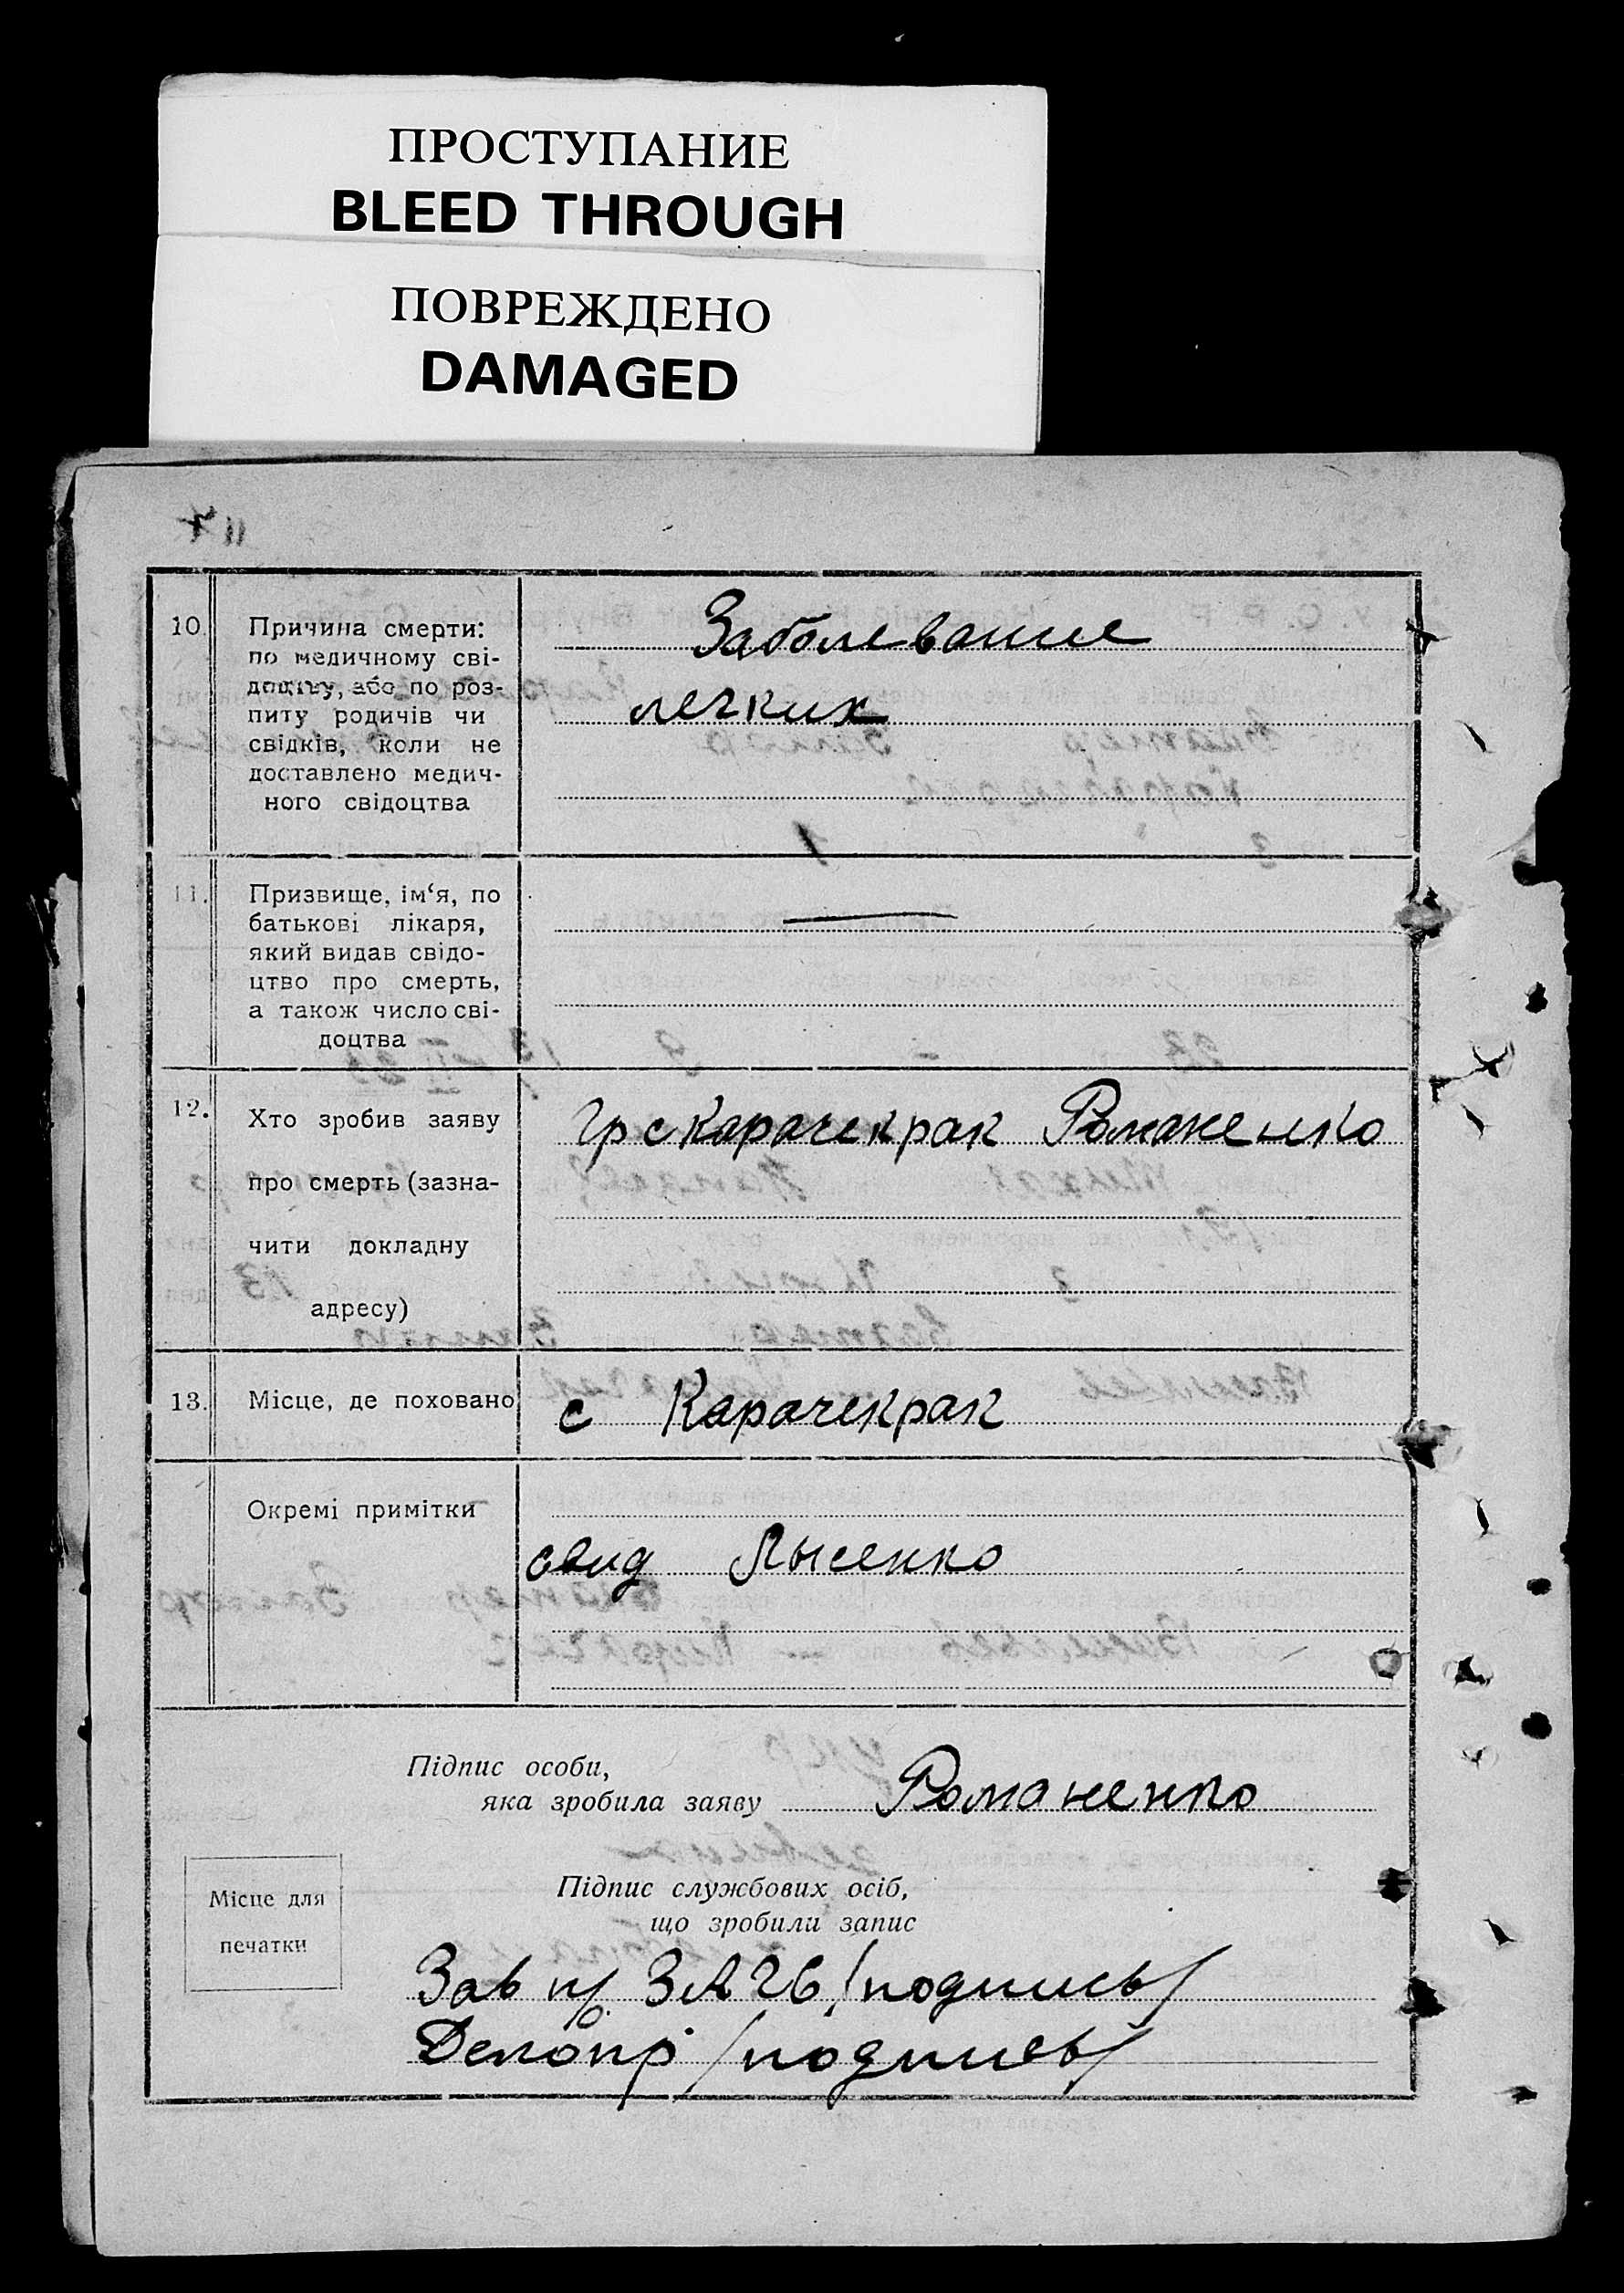 ПРОСТУПАНИЕ
BLEED THROUGH
ПОВРЕЖДЕНО
DAMAGED
10. Причина смерти:
по медичному сві-
доцтву, або по роз-
питу родичів чи
свідків, коли не
доставлено медич-
ного свідоцтва
Заболевание
легких
11. Призвище, ім‘я, по
батькові лікаря,
який видав свідо-
цтво про смерть,
а також число сві-
доцтва
—
12. Хто зробив заяву
про смерть (зазна-
чити докладну
адресу)
Гр с Карачекрак Романенко
13. Місце, де поховано
с Карачекрак
Окремі примітки
свид Лысенко
Підпис особи,
яка зробила заяву Романенко
Місце для
печатки
Підпис службових осіб,
що зробили запис
Зав п/б ЗАГС /подпись/
Делопр /подпись/